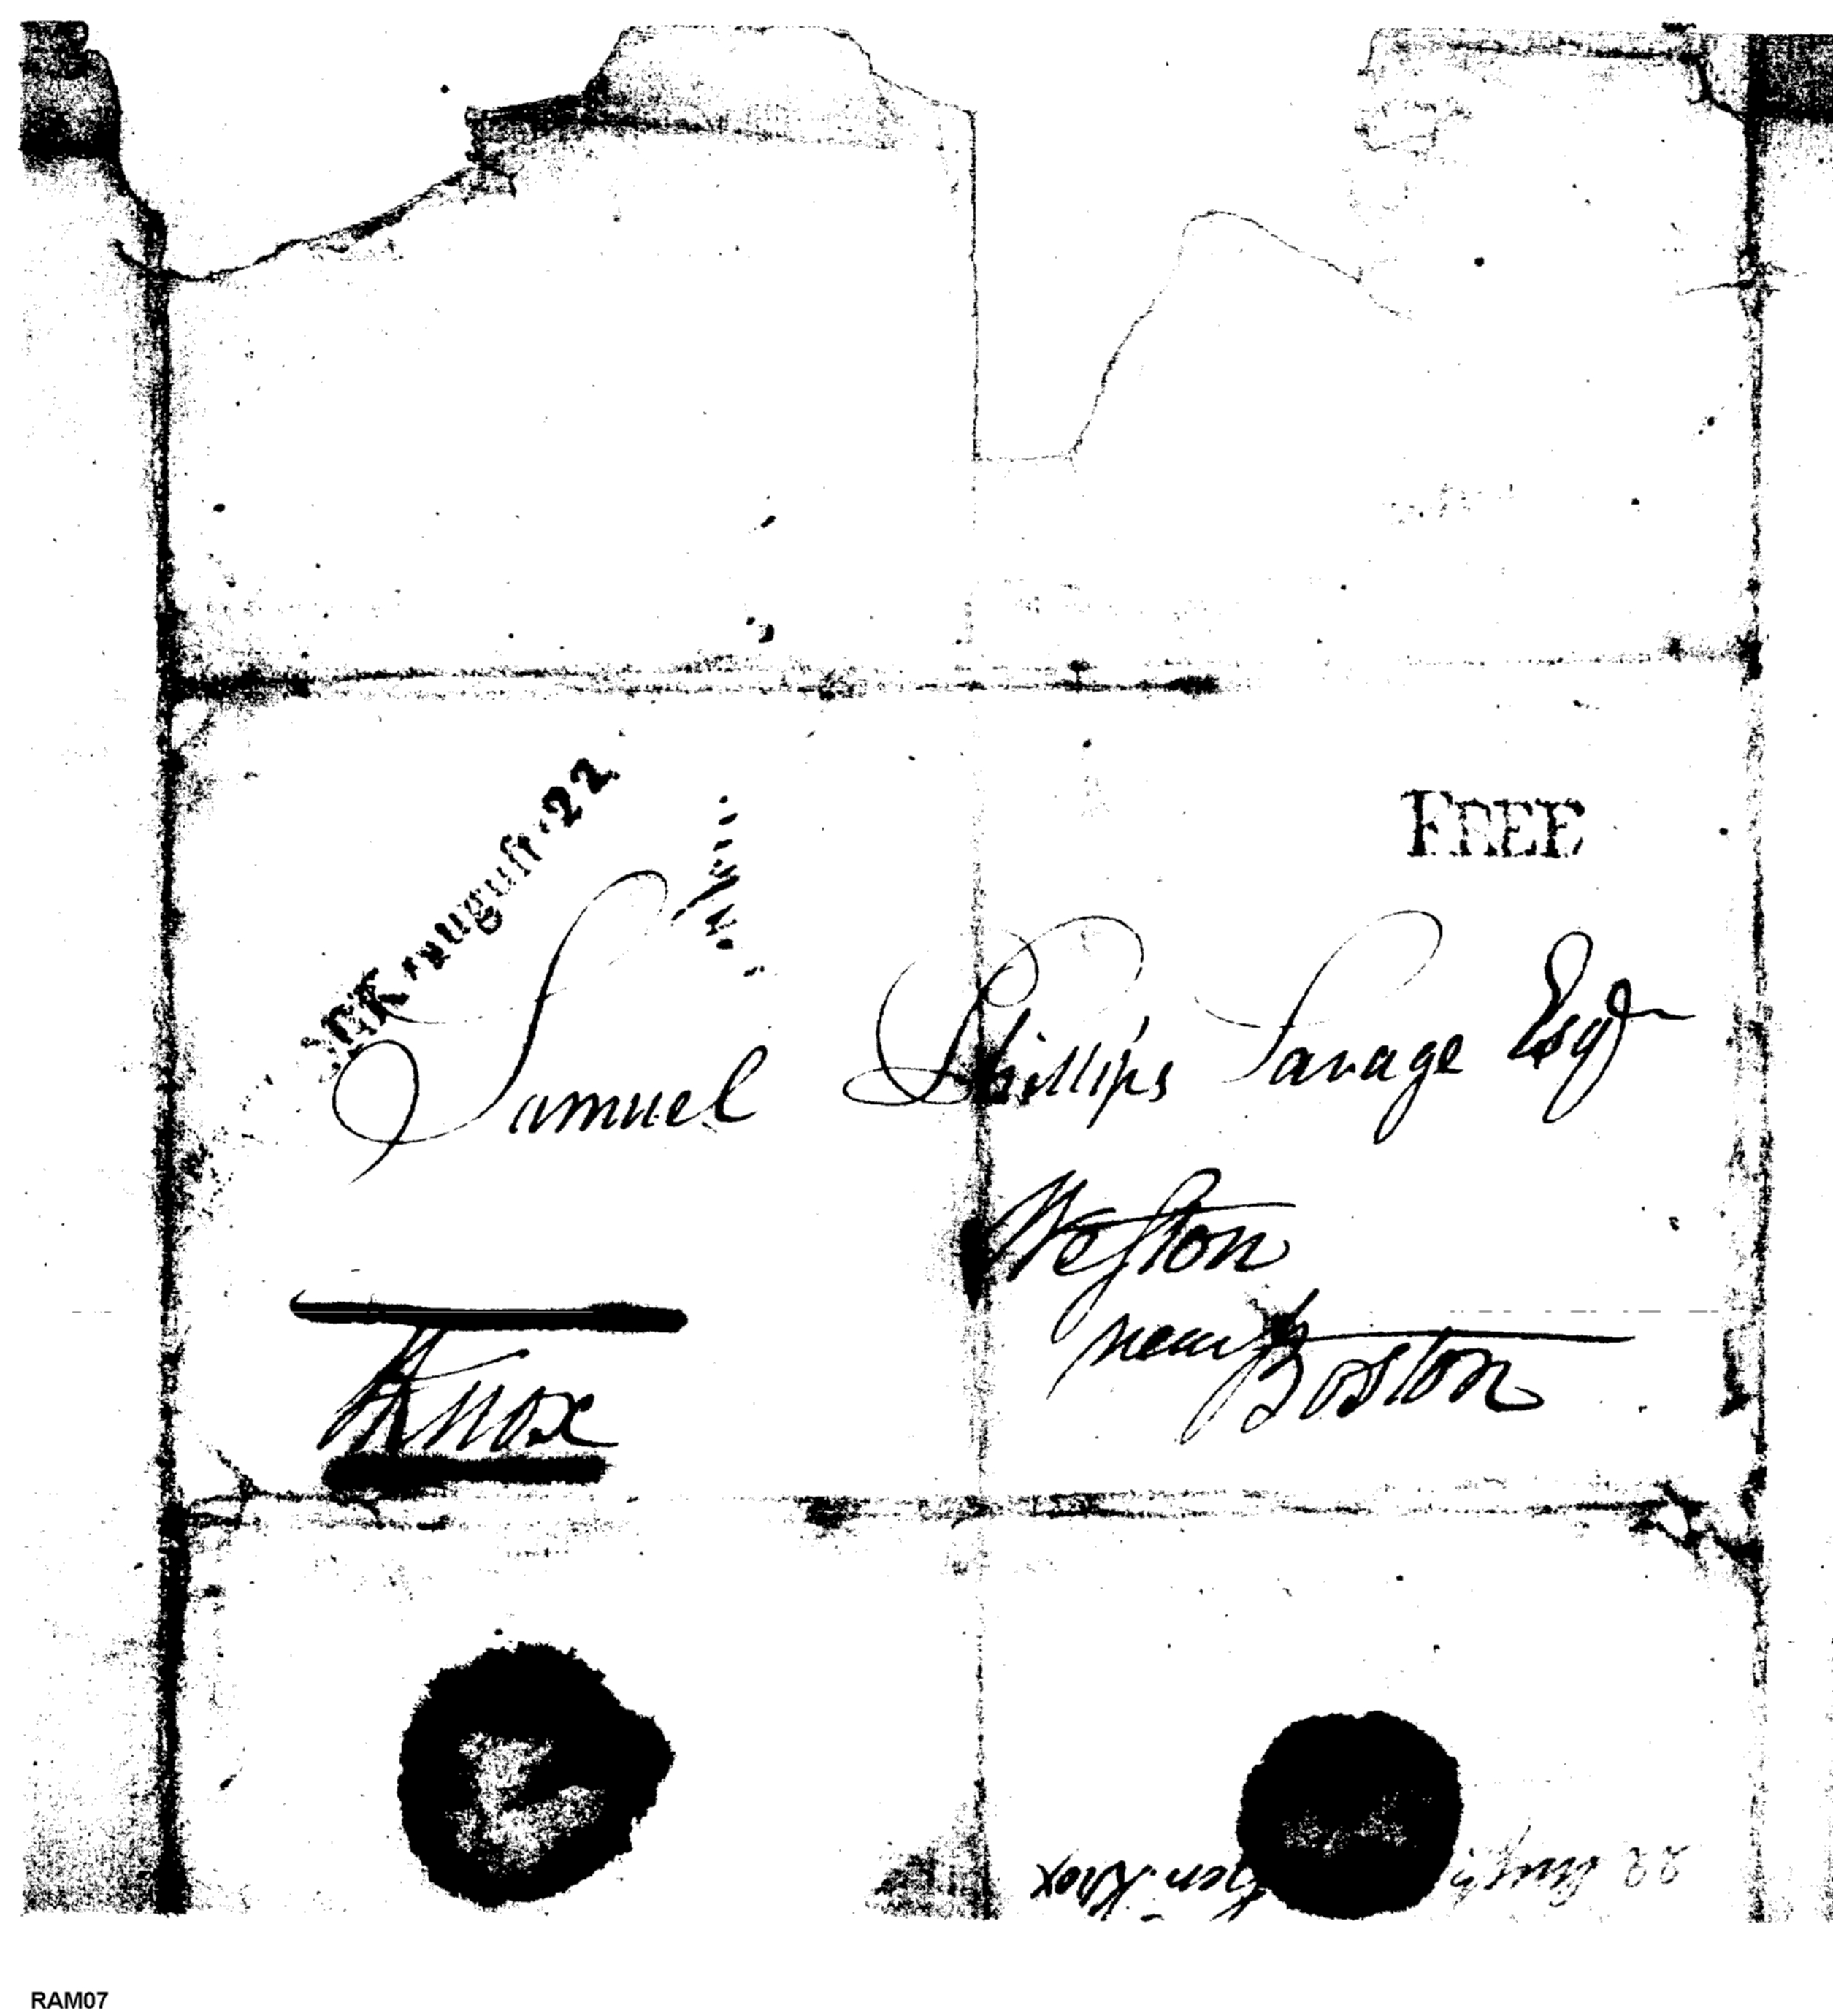 FREE
August 22
Samuel Phillips Savage Esqr
Weston
near
Boston
Knox
22 Augt Gen. Knox
RAM07